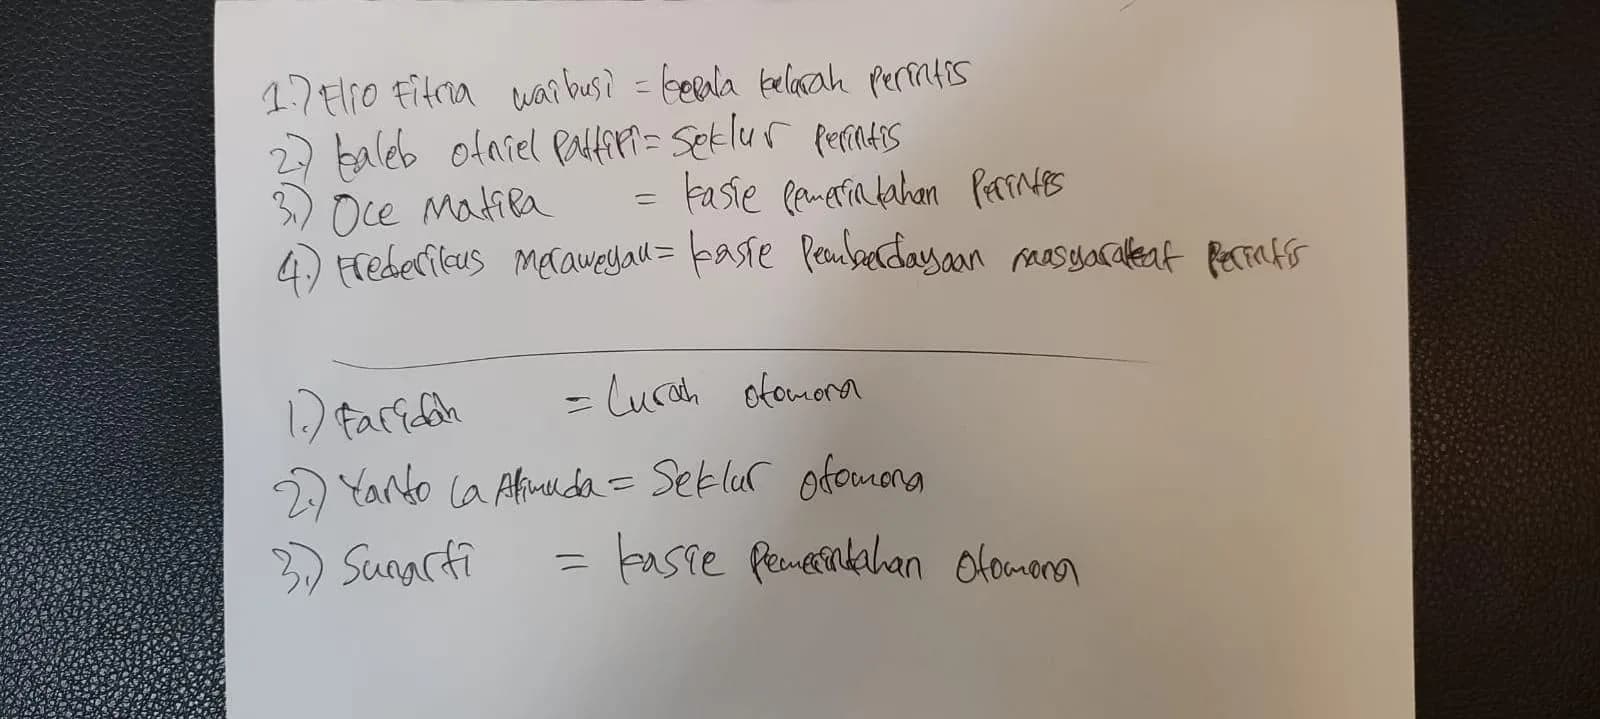 1.) Elio Fitria waibusi = kepala kelurah Perintis
2.) kaleb otniel Pattipi = Seklur Perintis
3.) Oce Matipa = kasie Pemerintahan Perintis
4.) Frederikus Meraweyau = kasie Pemberdayaan masyarakat Perintis
1.) Faridah = Lurah Otomona
2.) Yanto La Alimuda = Seklur Otomona
3.) Sunarti = kasie Pemerintahan Otomona